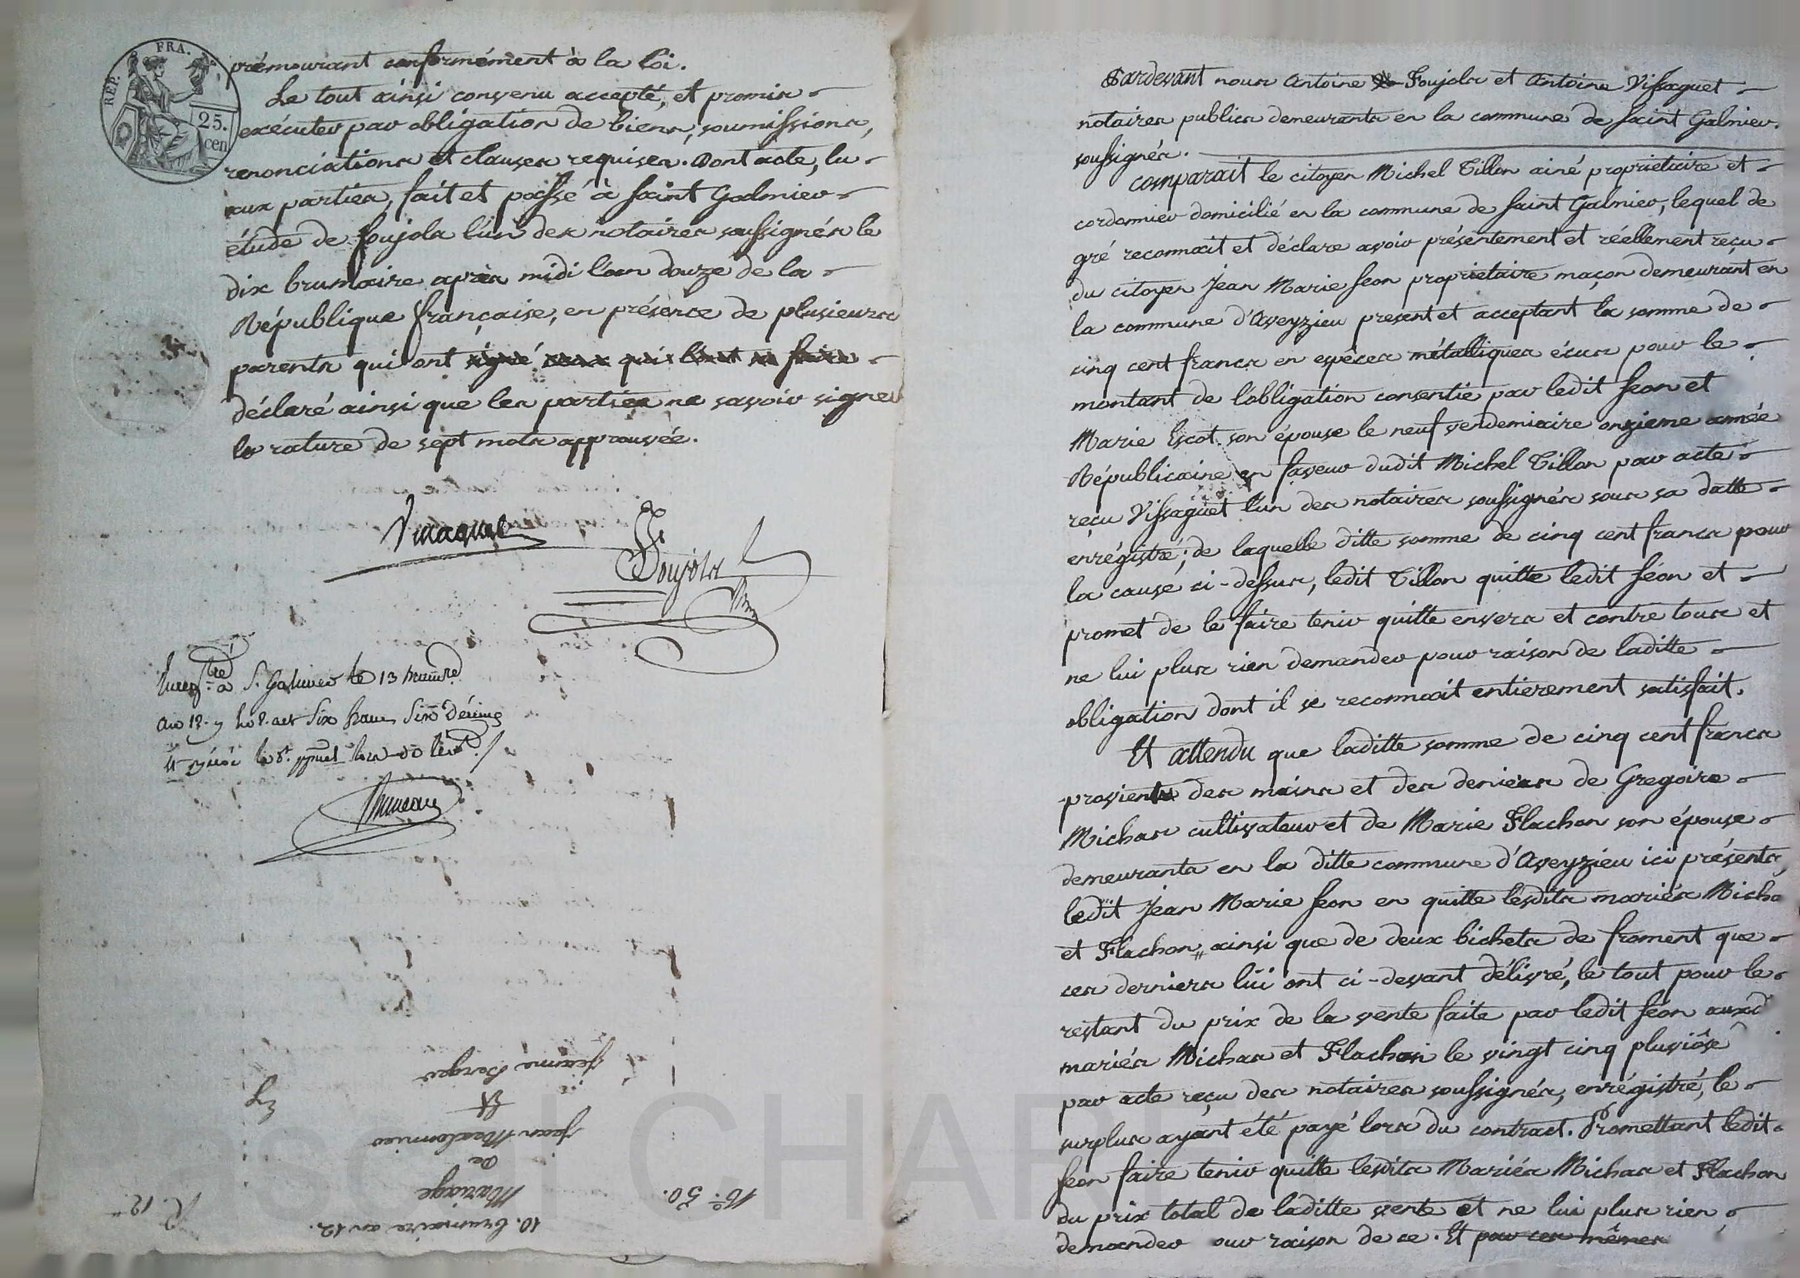 REP. FRA.
25.
cen
prémourant conformément à la loi.
Le tout ainsi convenu accepté, et promis
exécuter par obligation de biens, soumissions,
renonciations et clauses requises. Dont acte, lu
aux parties, fait et passé à Saint Galmier
étude de Soujols l'un des notaires soussignés le
dix brumaire après midi l'an douze de la
République française, en présence de plusieurs
parents qui ont signé ceux qui l'ont su faire
déclaré ainsi que les parties ne savoir signer
la rature de sept mots approuvée.
Vissaguet
Soujols
à St Galmier le 13 brumre
an 12. six francs six décimes
10. brumaire an 12.
Mariage
de
Jean
et
Jeanne Berger
16. 50.
Pardevant nous Antoine Soujols et Antoine Vissaguet
notaires publics demeurants en la commune de Saint Galmier.
soussignés.
Comparait le citoyen Michel Tillon ainé propriétaire et
cordonnier domicilié en la commune de Saint Galmier, lequel de
gré reconnait et déclare avoir présentement et réellement reçu
du citoyen Jean Marie Seon propriétaire maçon demeurant en
la commune d'Aveyzieu present et acceptant la somme de
cinq cent francs en espèces métalliques écus pour le
montant de l'obligation consentie par ledit Seon et
Marie Escot son épouse le neuf vendemiaire onzieme année
Républicaine en faveur dudit Michel Tillon par acte
reçu Vissaguet l'un des notaires soussignés sous sa datte
enrégistré; de laquelle ditte somme de cinq cent francs pour
la cause ci-dessus, ledit Tillon quitte ledit Séon et
promet de le faire tenir quitte envers et contre tous et
ne lui plus rien demander pour raison de laditte
obligation dont il se reconnait entierement satisfait.
Et attendu que laditte somme de cinq cent francs
provient des mains et des deniers de Gregoire
Michas cultivateur et de Marie Flachon son épouse
demeurants en la ditte commune d'Aveyzieu ici présents,
ledit Jean Marie Seon en quitte lesdits mariés Micha
et Flachon, ainsi que de deux bichets de froment que
ces derniers lui ont ci-devant délivré, le tout pour le
restant du prix de la vente faite par ledit Séon auxd
mariés Michas et Flachon le vingt cinq pluviôse
par acte reçu des notaires soussignés, enrégistré, le
surplus ayant été payé lors du contract. Promettant ledit
Seon faire tenir quitte lesdits Mariés Michas et Flachon
du prix total de laditte vente et ne lui plus rien
demander our raison de ce. Et par ces mêmes